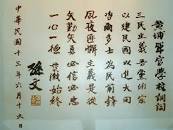 黃埔軍官學校訓詞
三民主義吾黨所宗
以建民國以進大同
咨爾多士為民前鋒
夙夜匪懈主義是從
矢勤矢勇必信必忠
一心一德貫徹始終
孫文
中華民國十三年六月十六日